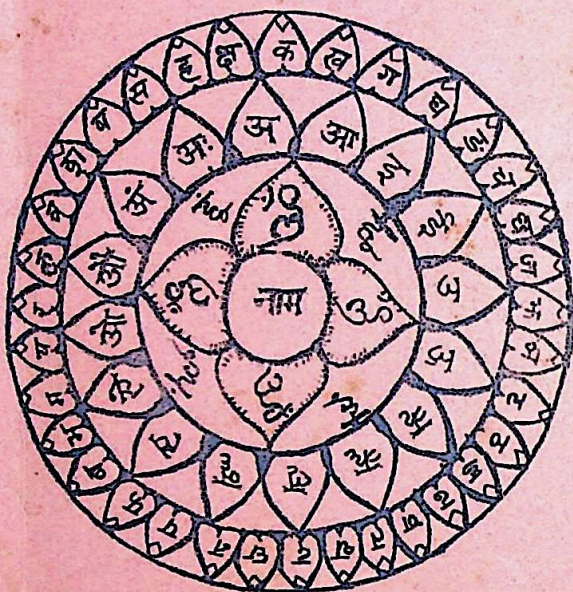 नाम
अ आ इ ई उ ऊ ऋ ॠ ऌ ॡ ए ऐ ओ औ अं अः
क ख ग घ ङ च छ ज झ ञ ट ठ ड ढ ण त थ द ध न प फ ब भ म य र ल व श ष स ह क्ष